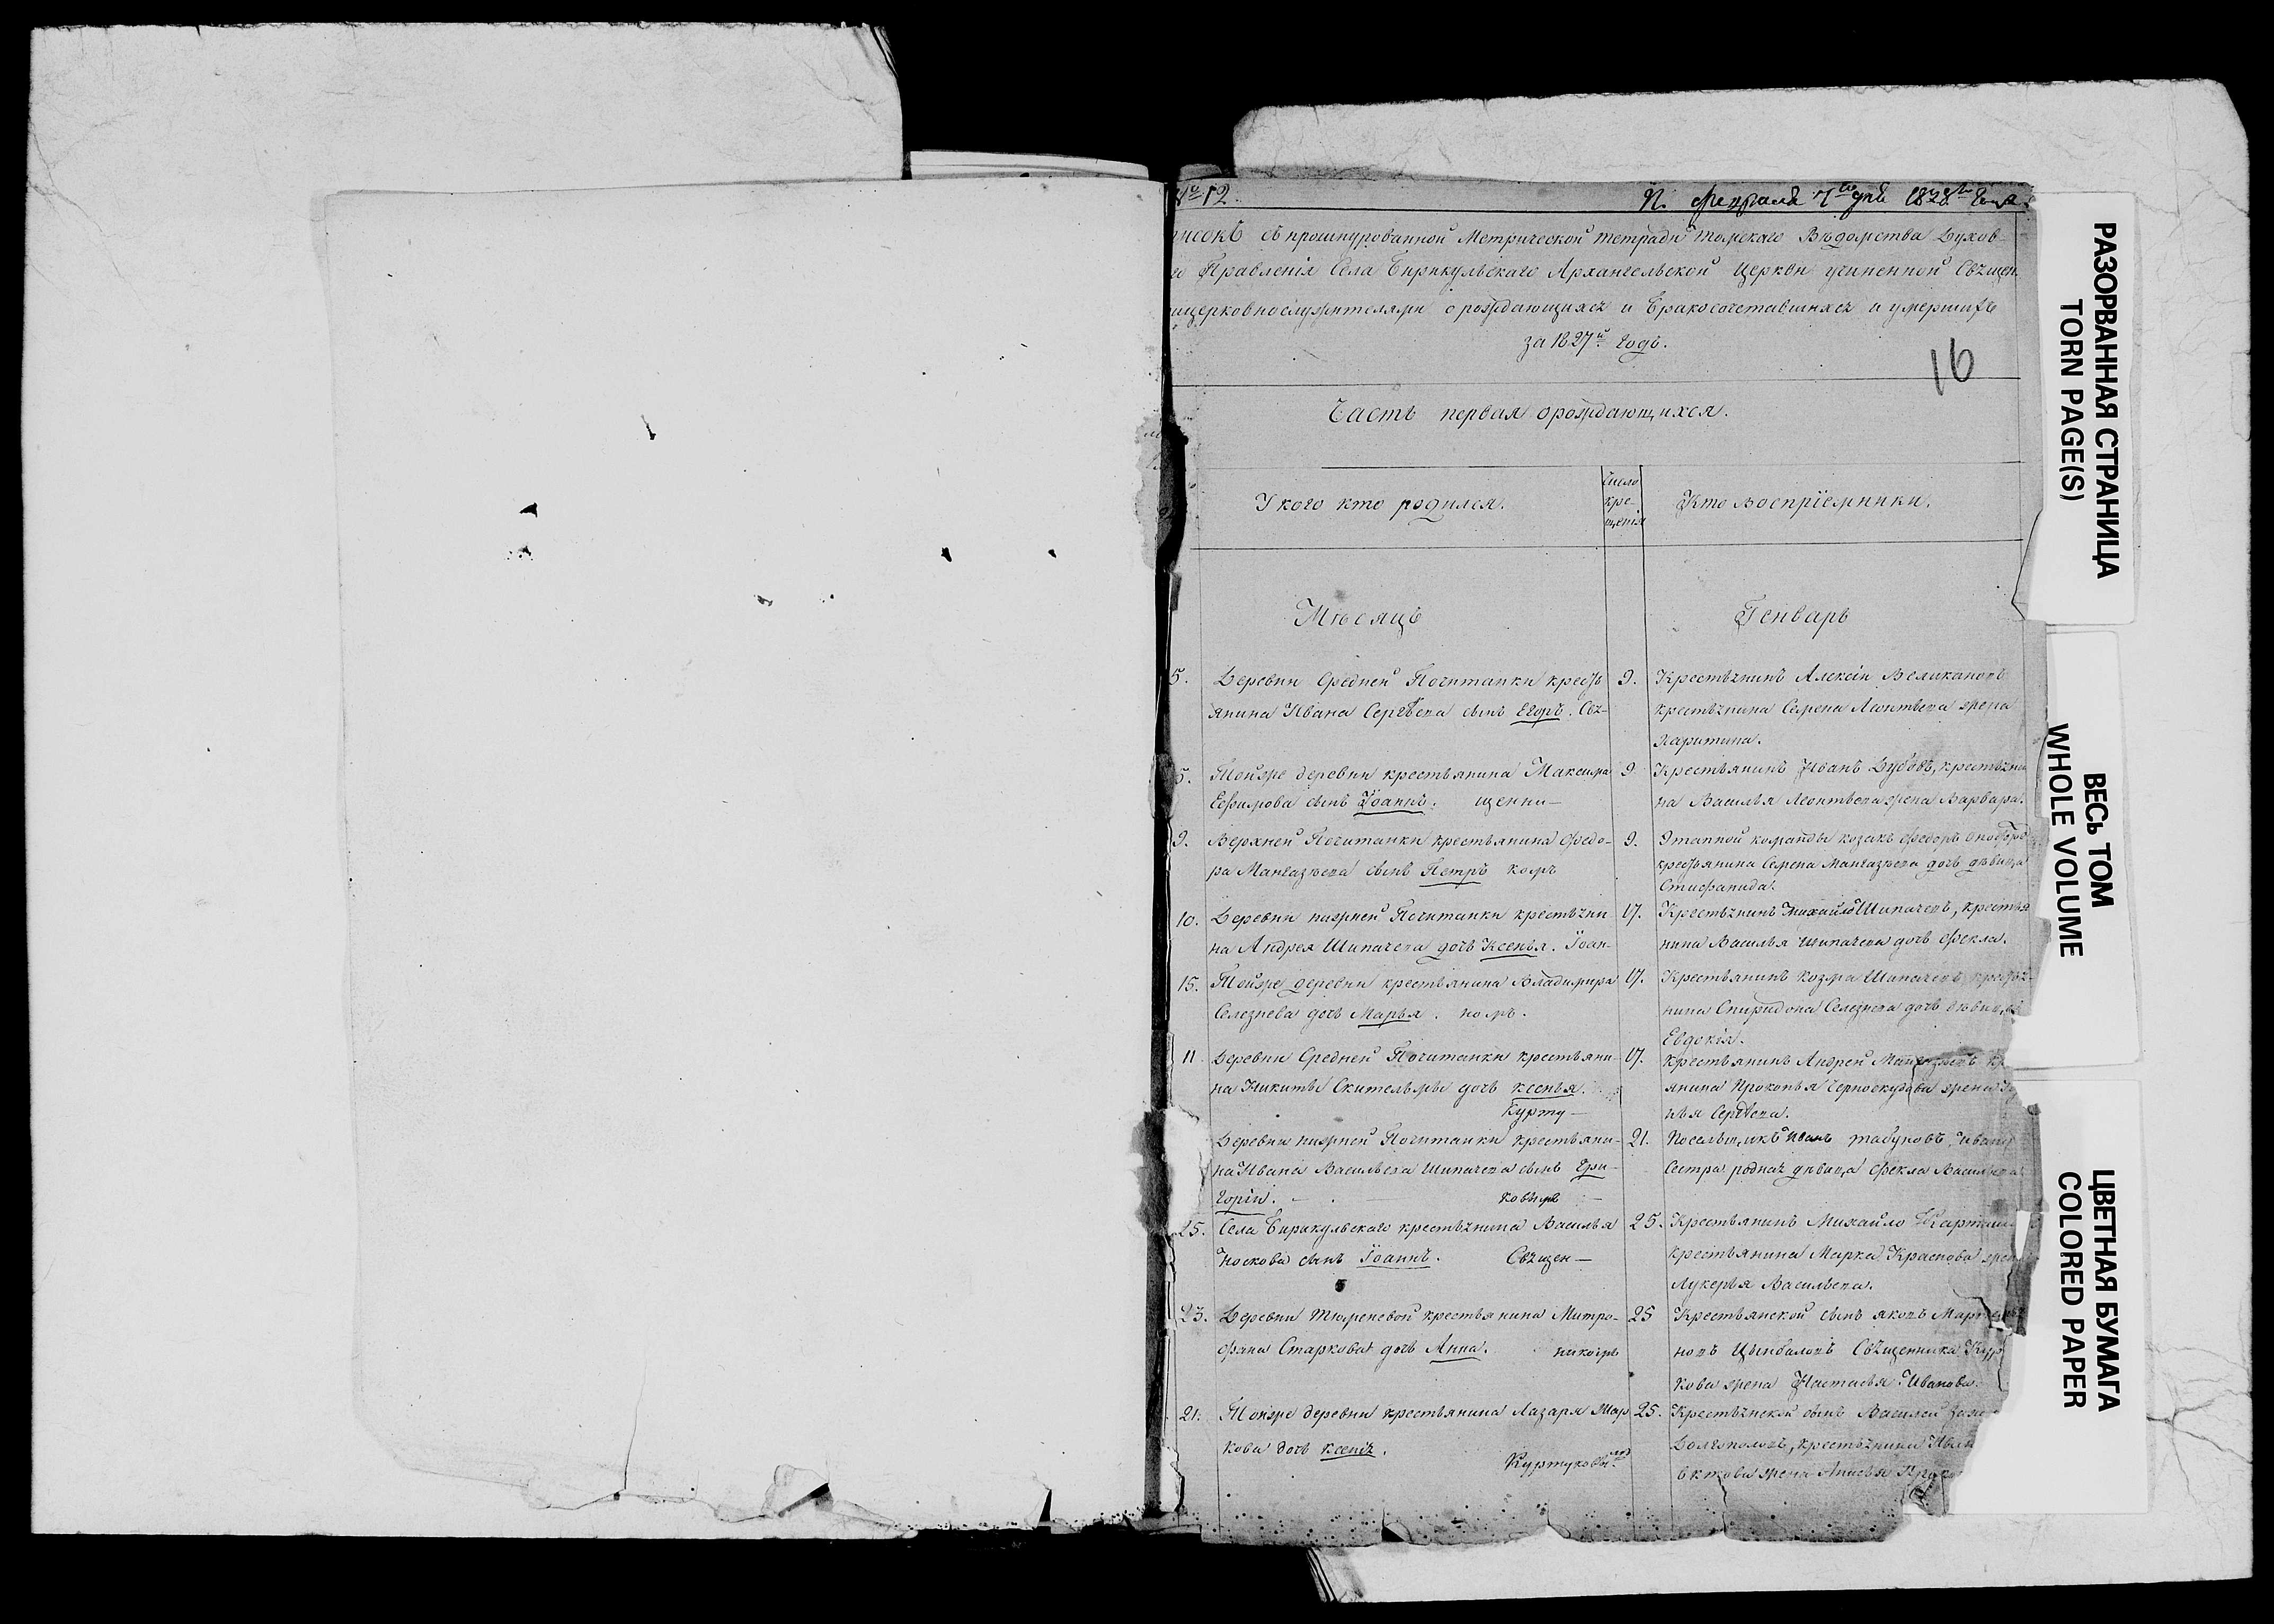 № 12.
П. февраля 7го дня 1828го года.
писокъ съ прошнурованной Метрической тетради Томскаго Вѣдомства Духов-
го Правленія Села Бирикульскаго Архангельской Церкви учиненной Священ-
ицерковнослужителями о рождающихся и Бракосочетавшихся и умершихъ
за 1827й годъ.
16
Часть первая о рождающихся.
У кого кто родился.
Число
кре-
щенія
Кто воспріемники.
Мѣсяцъ
Генварь
5. Деревни Средней Почитанки кресть
янина Ивана Сергѣева сынъ Егоръ. Свя-
9. Крестьянинъ Алексій Великановъ
крестьянина Семена Леонтьева жена
Харитина.
5. Тойже деревни крестьянина Максима
Ефимова сынъ Іоаннъ. щенни-
9. Крестьянинъ Иванъ Дубовъ, крестьяни
на Василья Леонтьева жена Варвара.
9. Верхней Почитанки крестьянина Федо-
ра Мангазѣева сынъ Петръ комъ
9. Этапной команды козакъ Федоръ
крестьянина Семена Мангазѣева дочь дѣвица
Стефанида.
10. Деревни нижней Почитанки крестьяни
на Андрея Шипачева дочь Ксенья. Іоан-
17. Крестьянинъ Михайло Шипачевъ, крестья
нина Василья Шипачева дочь Фекла.
15. Тойже деревни крестьянина Владимира
Селезнева дочь Марья. номъ.
17. Крестьянинъ Козма Шипачевъ крестья-
нина Спиридона Селезнева дочь дѣвица
Евдокія.
11. Деревни Средней Почитанки крестьяни-
на Никиты дочь Ксенья.
Курту-
17. Крестьянинъ Андрей Мангазѣевъ кр
янина Прокопья Черноскутова жена
нья Сергѣева.
Деревни нижней Почитанки крестьяни-
на Ивана Васильева Шипачева сынъ Гри-
горій. ковымъ
21. Посельщикъ Иванъ Табуновъ, Ивана
сестра родная дѣвица Фекла Васильева
25. Села Бирикульскаго крестьянина Василья
Носкова сынъ Іоаннъ. Священ-
25. Крестьянинъ Михайло
крестьянина Марка Краснова жена
Лукерья Васильева.
23. Деревни Тюменевой крестьянина Митро-
фана Старкова дочь Анна. никомъ
25 Крестьянской сынъ Яковъ
новъ Цынбаловъ Священника Кур
кова жена Настасья Иванова.
21. Тойже деревни крестьянина Лазаря Жар
кова дочь Ксенія.
Куртуковымъ
25. Крестьянской сынъ Василей
Долгополовъ, крестьянина Ива
жена Анисья
РАЗОРВАННАЯ СТРАНИЦА
TORN PAGE(S)
ВЕСЬ ТОМ
WHOLE VOLUME
ЦВЕТНАЯ БУМАГА
COLORED PAPER